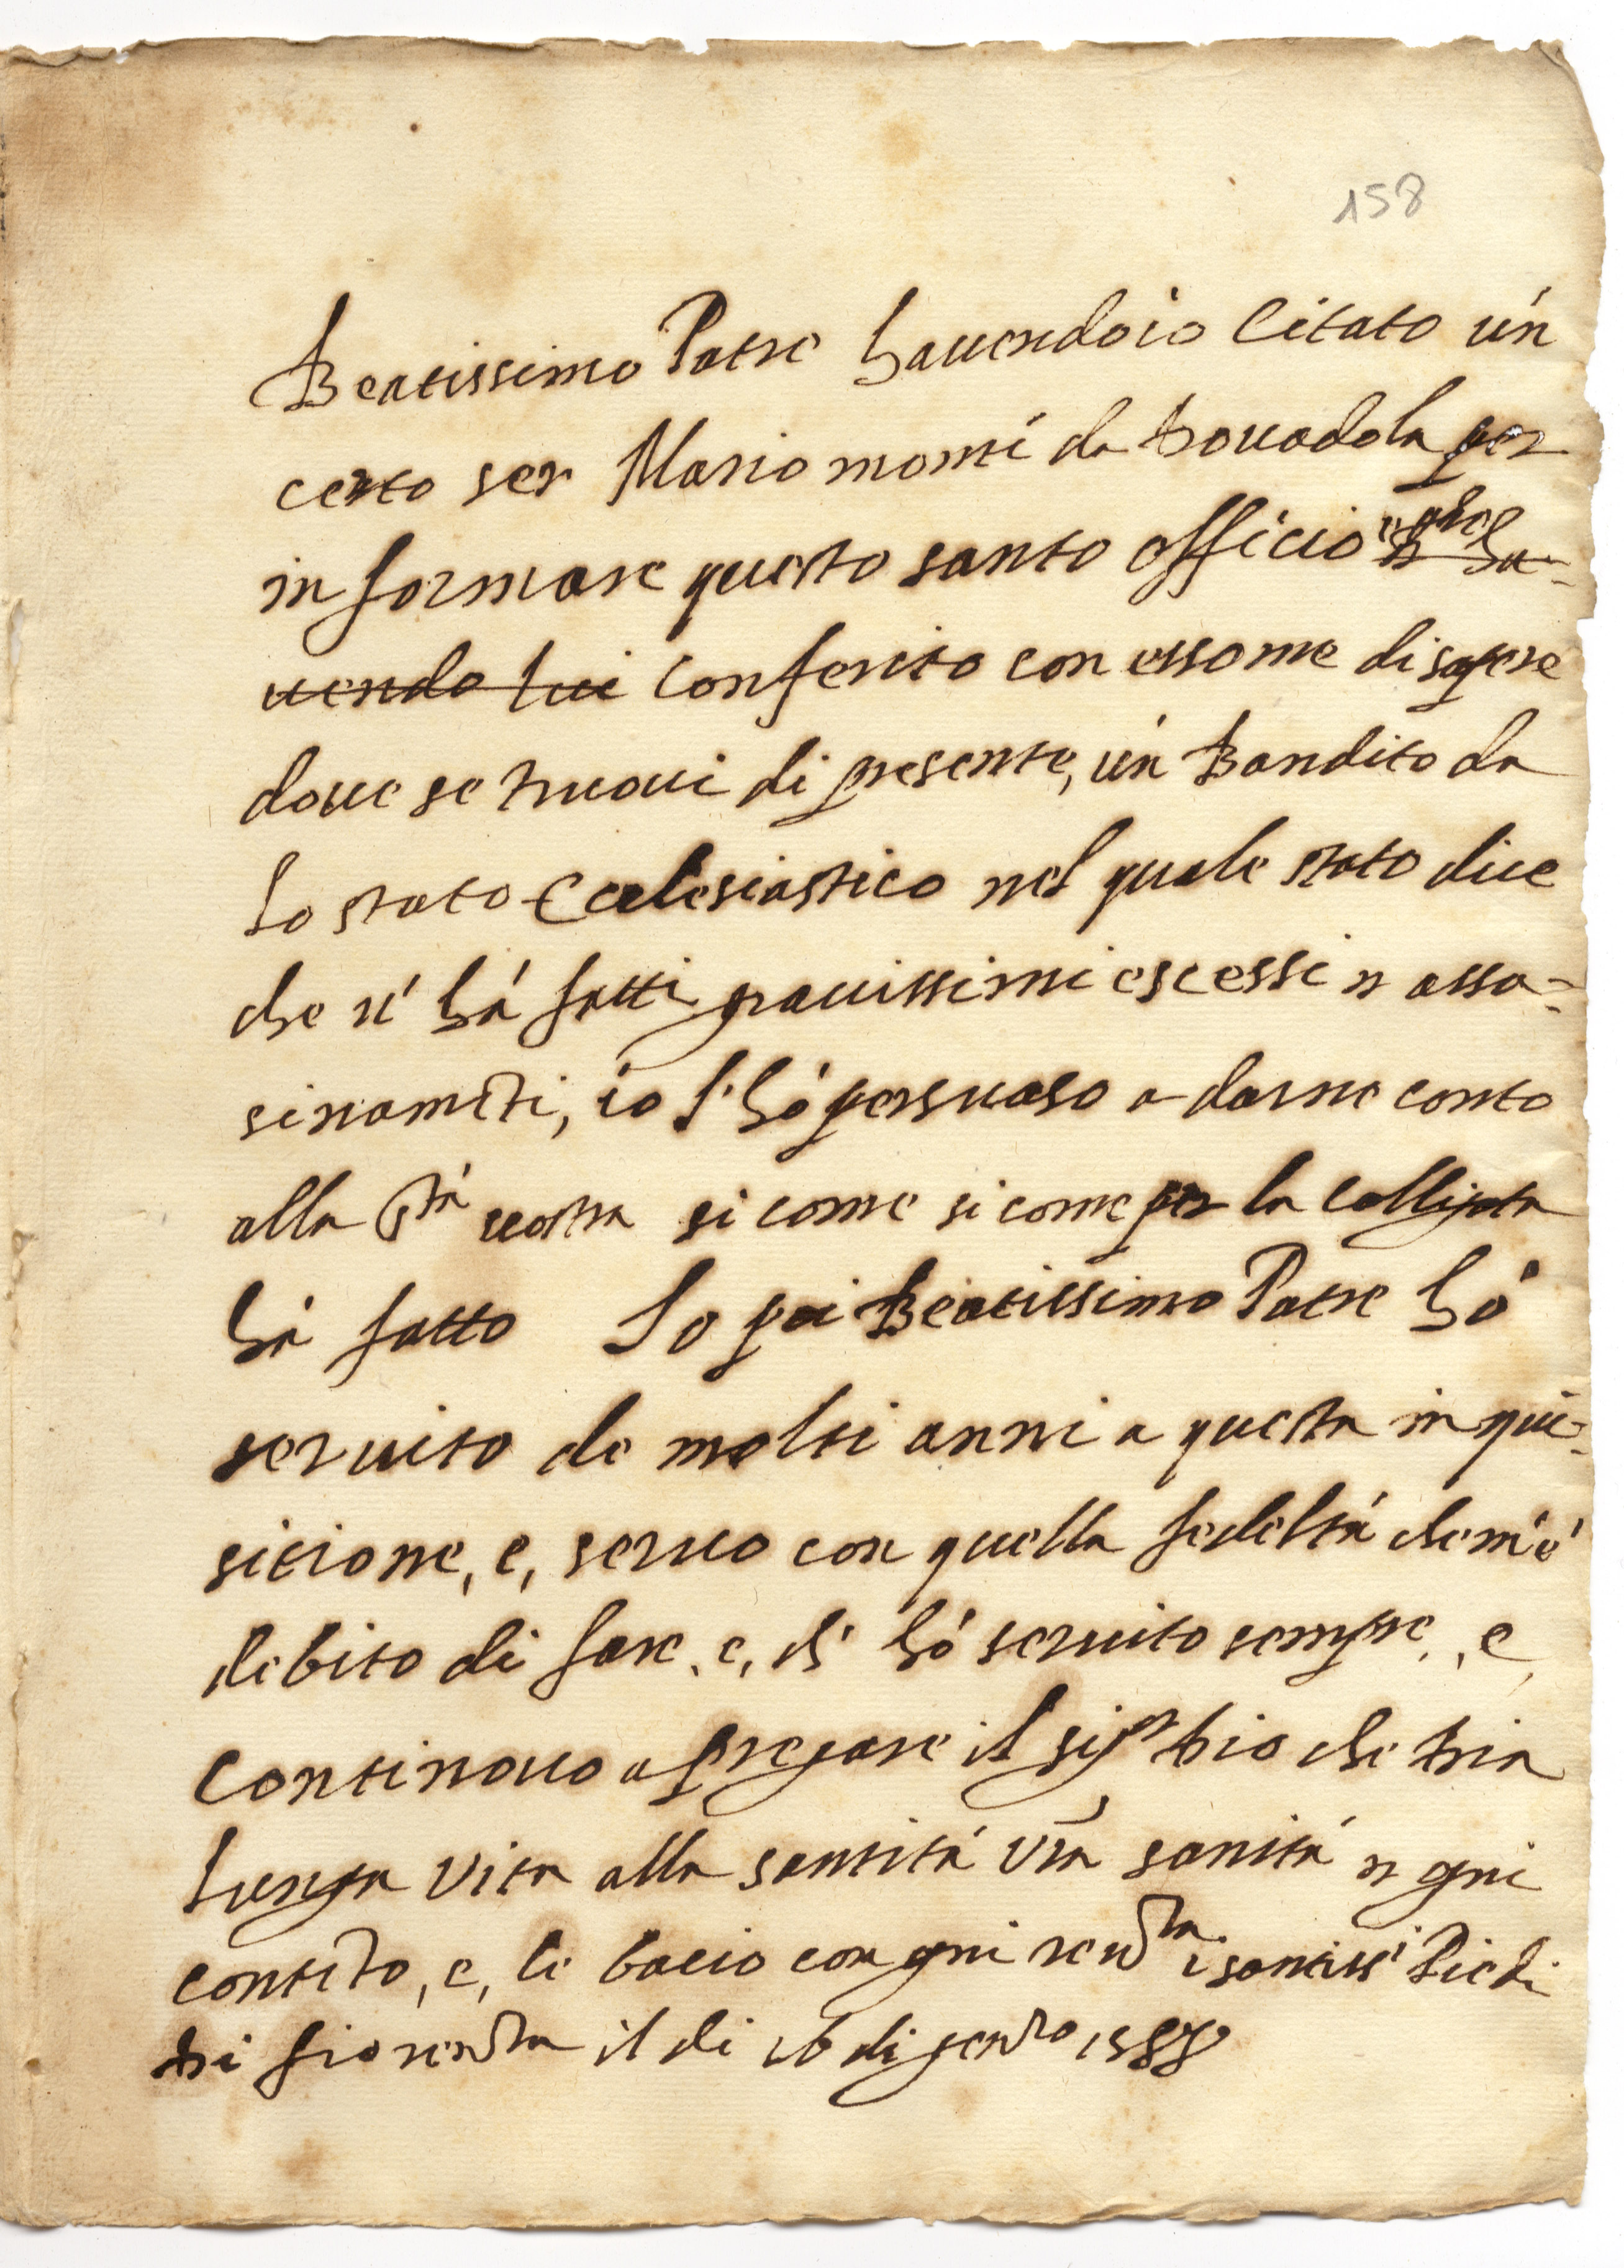 158
Beatissimo Patre havendoio Citato un
certo ser Mario monti da Dovadola per
informare questo santo officio
uendo lui conferito con esso me di sapere
doue se truoui di presente, un Bandito da
lo stato Ecclesiastico nel quale stato dice
che n' há fatti grauissimi escessi n assa=
sinamti, io l'hó persuaso a darne conto
alla Stà uostra si come si come per la colligata
há fatto Io poi Beatissimo Patre hó
seruito de molti anni a questa inqui=
sitione, e, seruo con quella fedeltá che m'é
debito di fare, e, ch' hó seruito sempre, e,
continouo a pregare il sigr Dio che Dia
lunga vita alla santitá Vra sanitá n ogni
contto, e, le bacio con ogni reuta i santissi Piedi
Di fiorenza il di 16 di geno 1588